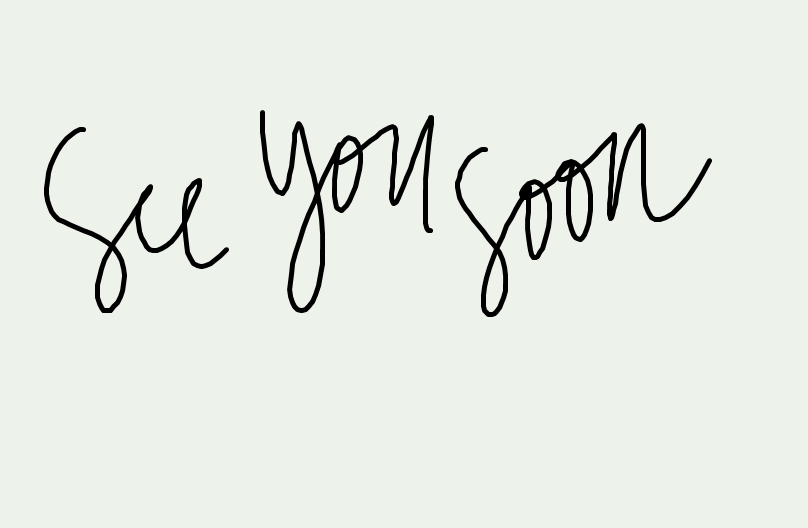 See you soon